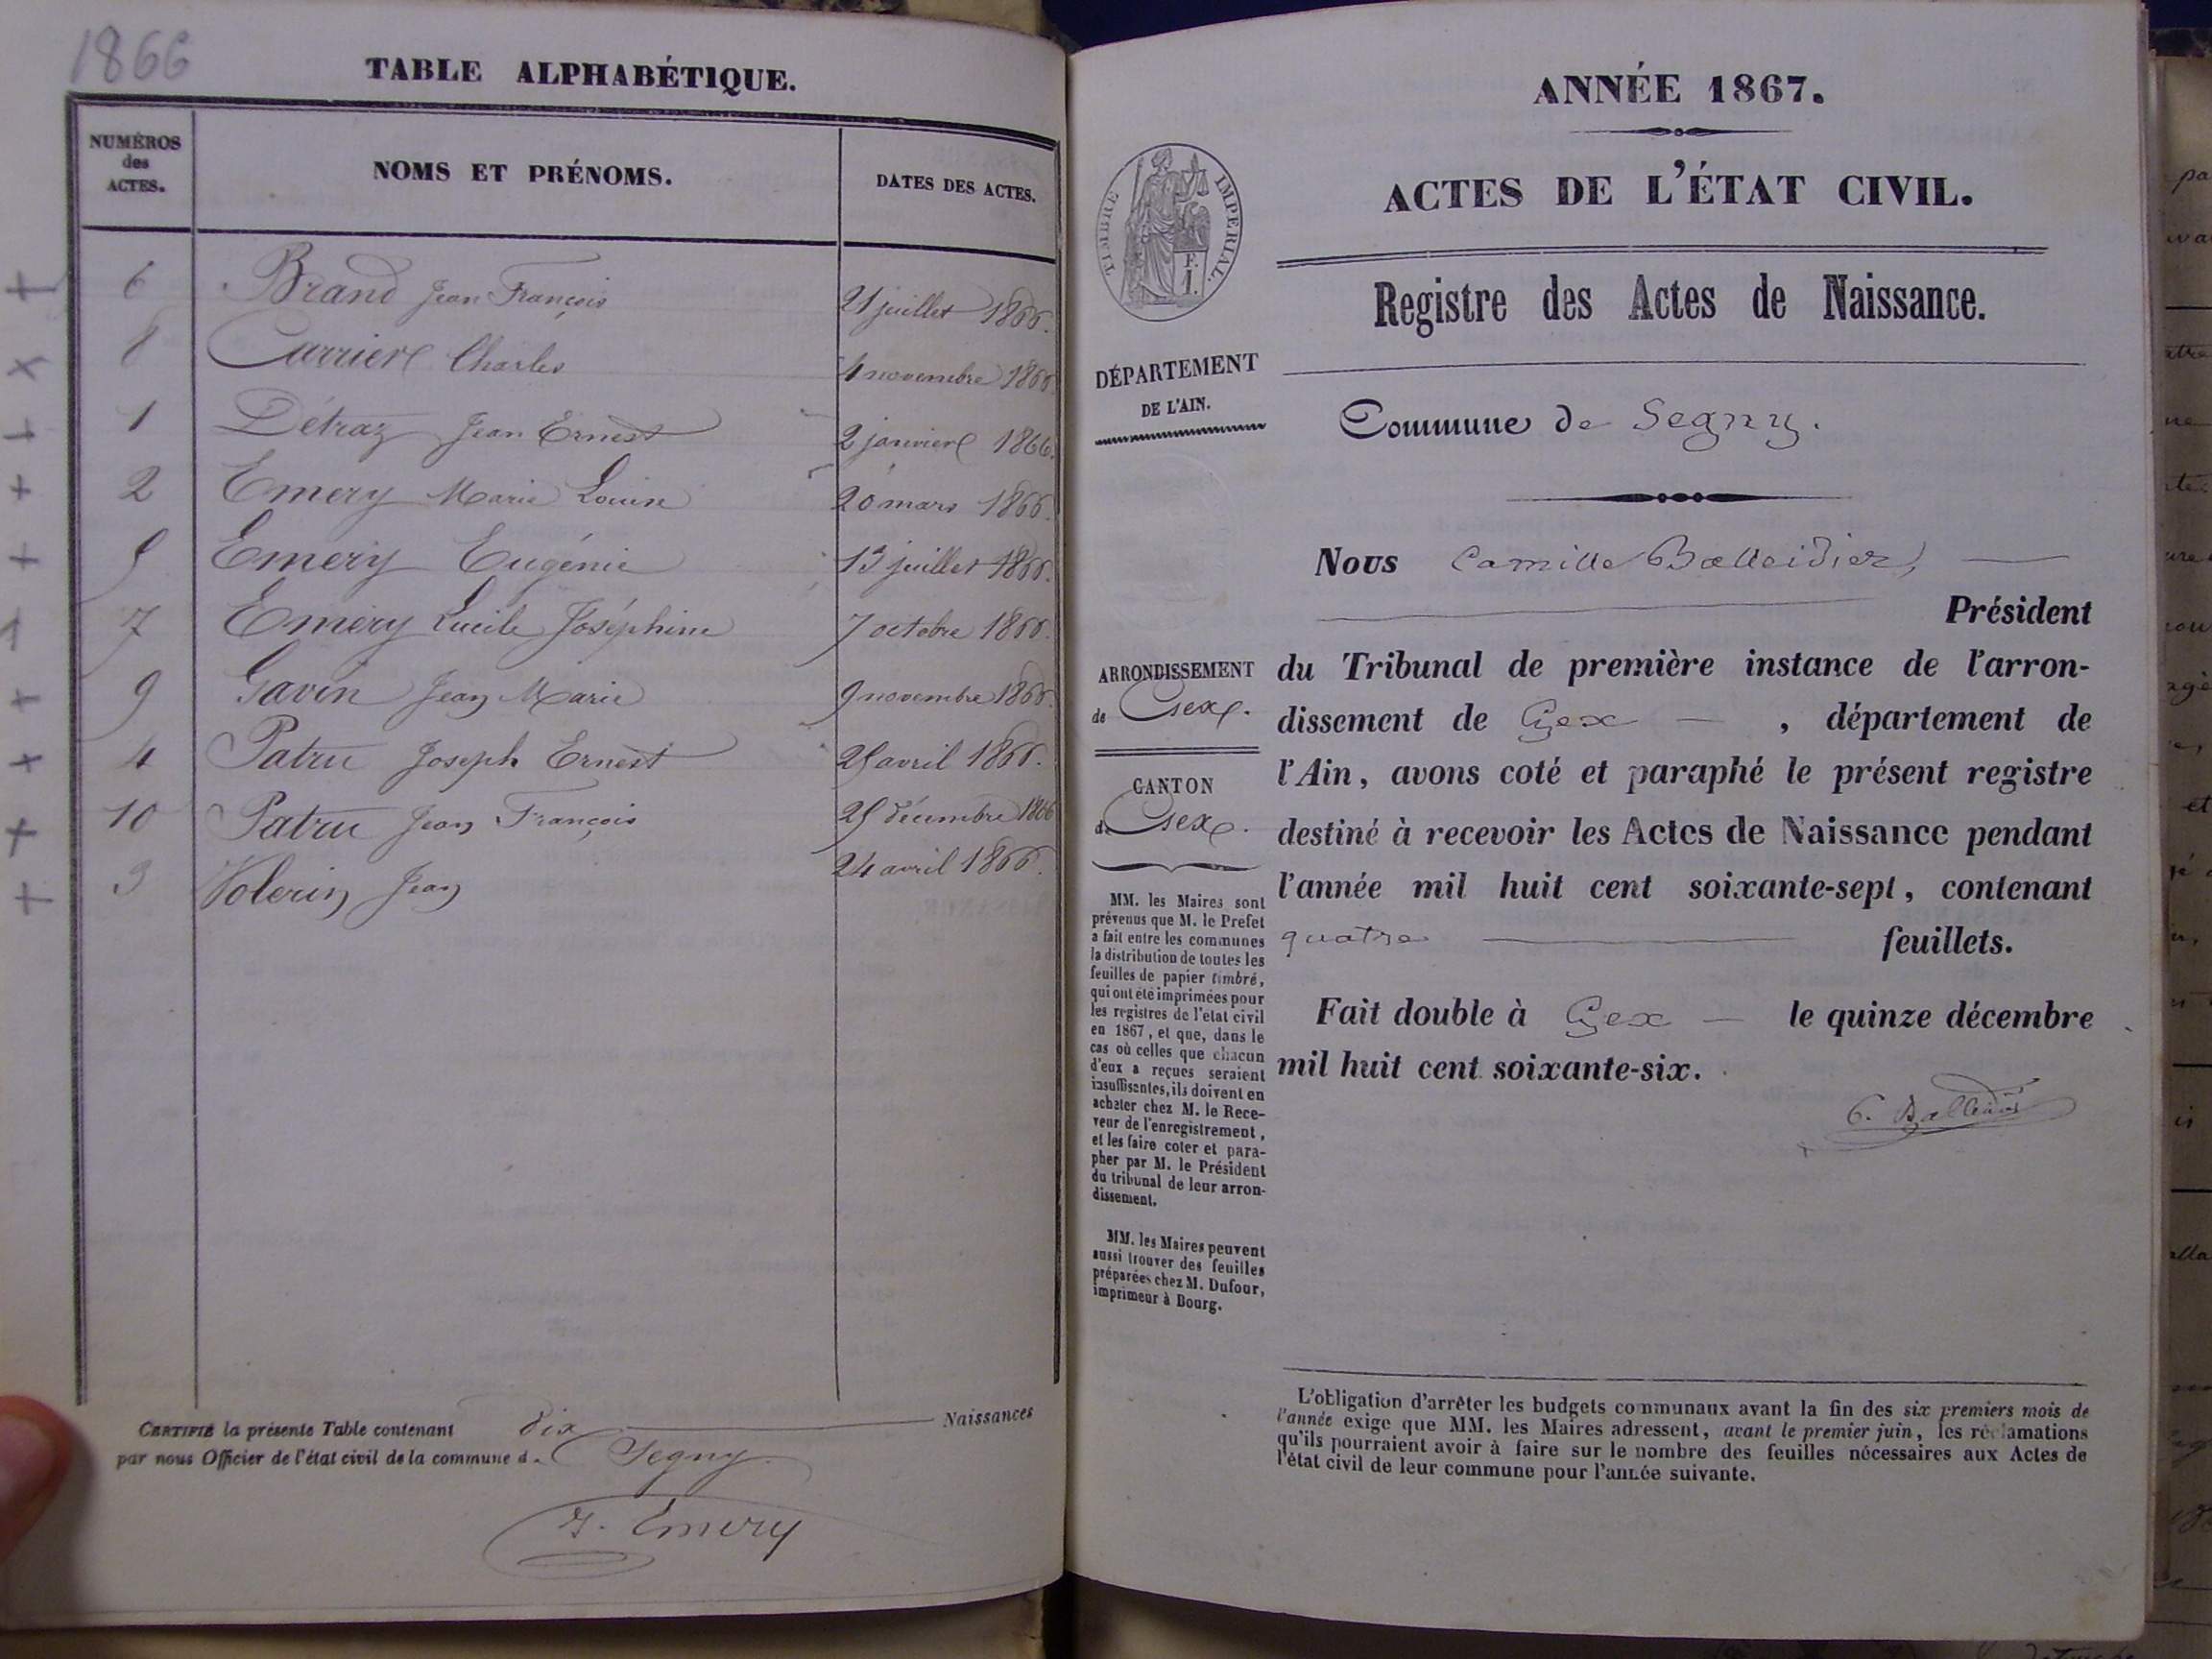 1866
TABLE ALPHABÉTIQUE.
NUMÉROS
des
ACTES.
NOMS ET PRÉNOMS.
DATES DES ACTES.
6 Brand Jean François 21 juillet 1866.
8 Carrier Charles 4 novembre 1866
1 Détraz Jean Ernest 2 janvier 1866.
2 Emery Marie Louise 20 mars 1866.
5 Emery Eugénie 13 juillet 1866.
7 Emery Lucile Joséphine 7 octobre 1866.
9 Gavin Jean Marie 9 novembre 1866.
4 Patru Joseph Ernest 25 avril 1866.
10 Patru Jean François 25 décembre 1866
3 Volerin Jean 24 avril 1866.
CERTIFIÉ la présente Table contenant dix Naissances
par nous Officier de l'état civil de la commune d. Segny.
Emery
ANNÉE 1867.
ACTES DE L'ÉTAT CIVIL.
TIMBRE IMPÉRIAL.
F.
1.
Registre des Actes de Naissance.
DÉPARTEMENT
DE L'AIN.
Commune de Segny.
Nous Camille Balleidier,
Président
du Tribunal de première instance de l'arron-
dissement de Gex , département de
l'Ain, avons coté et paraphé le présent registre
destiné à recevoir les Actes de Naissance pendant
l'année mil huit cent soixante-sept, contenant
quatre feuillets.
Fait double à Gex le quinze décembre
mil huit cent soixante-six.
C. Balleidier
ARRONDISSEMENT
de Gex.
CANTON
de Gex.
MM. les Maires sont
prévenus que M. le Prefet
a fait entre les communes
la distribution de toutes les
feuilles de papier timbré,
qui ont été imprimées pour
les registres de l'etat civil
en 1867, et que, dans le
cas où celles que chacun
d'eux a reçues seraient
insuffisantes, ils doivent en
acheter chez M. le Rece-
veur de l'enregistrement,
et les faire coter et para-
pher par M. le Président
du tribunal de leur arron-
dissement.
MM. les Maires peuvent
aussi trouver des feuilles
préparées chez M. Dufour,
imprimeur à Bourg.
L'obligation d'arrêter les budgets communaux avant la fin des six premiers mois de
l'année exige que MM. les Maires adressent, avant le premier juin, les réclamations
qu'ils pourraient avoir à faire sur le nombre des feuilles nécessaires aux Actes de
l'état civil de leur commune pour l'année suivante.